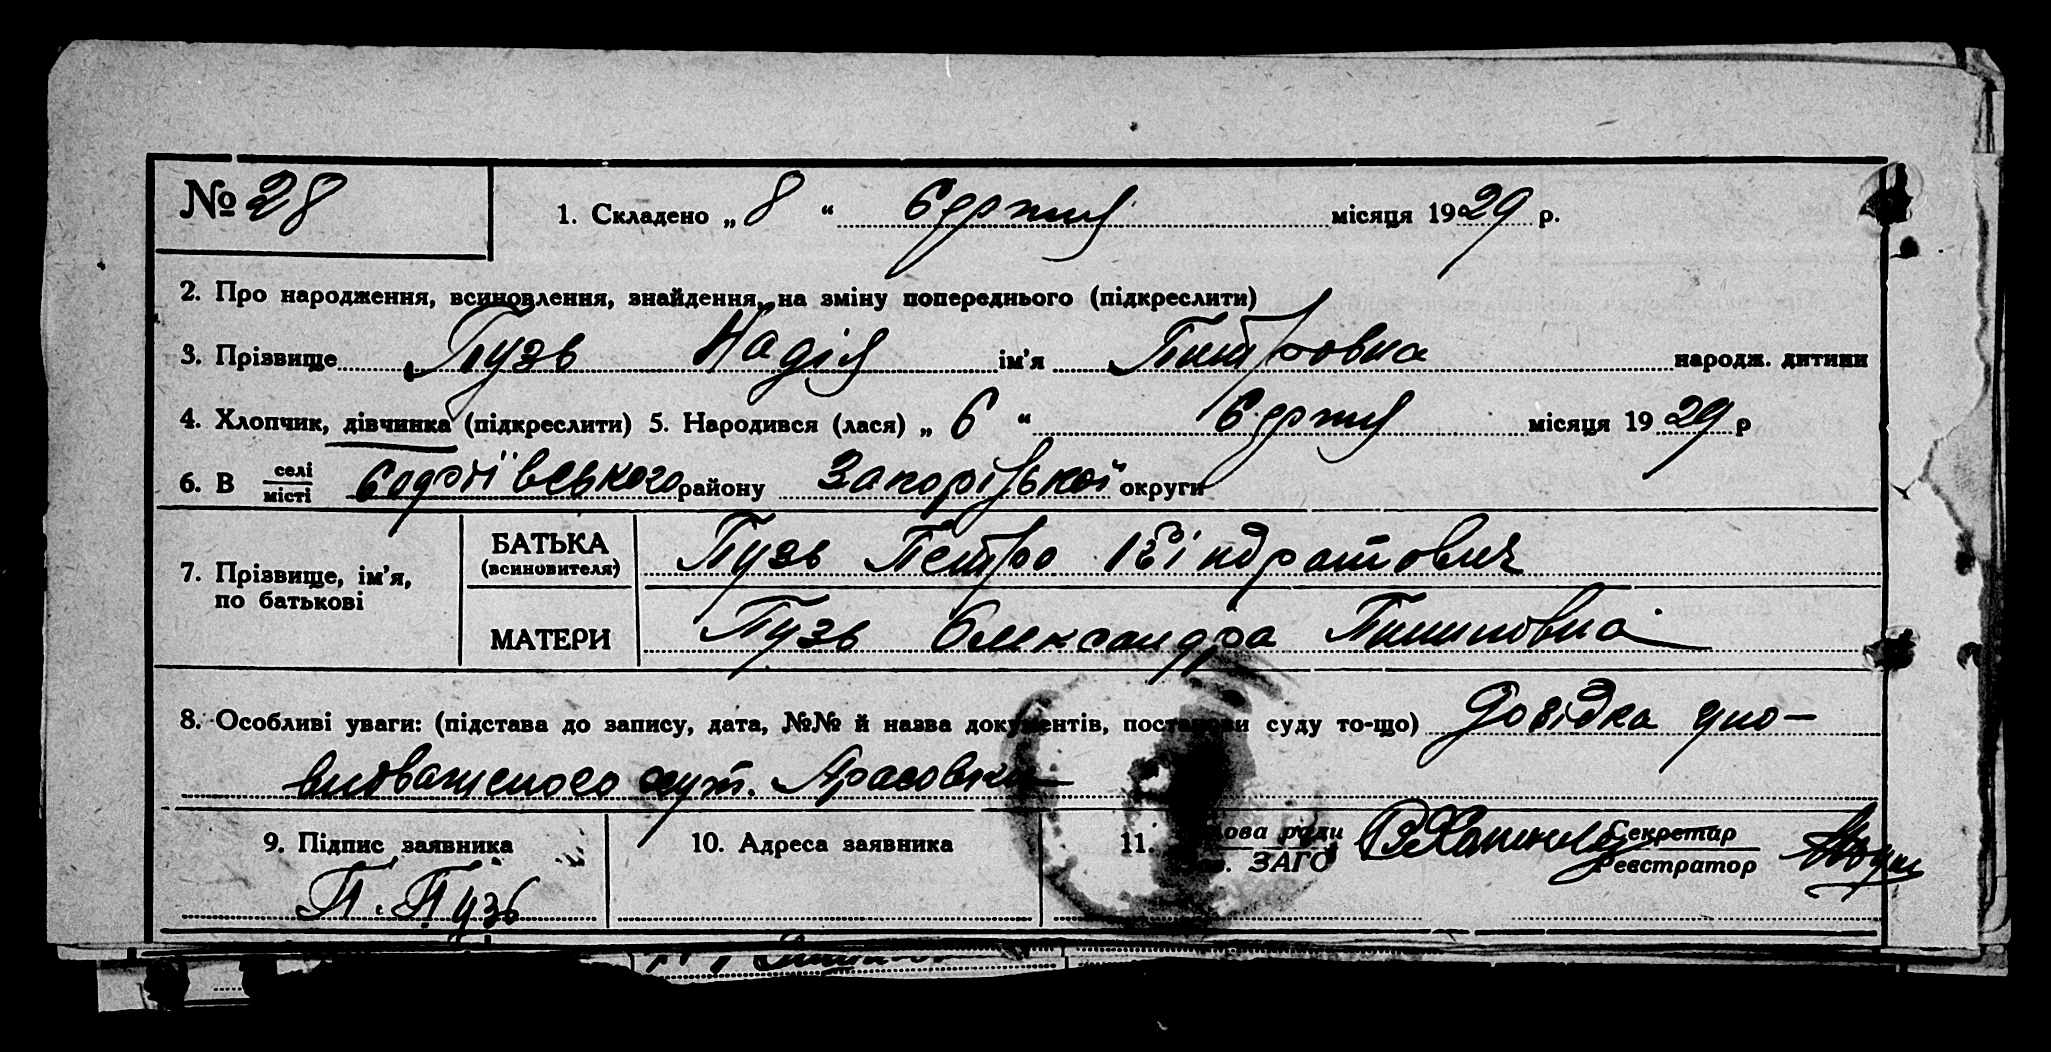 № 28
1. Складено „ 8 “ Серпня місяця 1929 р.
2. Про народження, всиновлення, знайдення, на зміну попереднього (підкреслити)
3. Прізвище Пузь Надія ім’я Питровна народж. дитини
4. Хлопчик, дівчинка (підкреслити) 5. Народився (лася) „ 6 “ Серпня місяця 1929 р
6. В селі місті району Запорізької округи
7. Прізвище, ім’я, по батькові
БАТЬКА (всиновителя) Пузь Петро Кіндратович
МАТЕРИ Пузь Олександра Пилиповна
8. Особливі уваги: (підстава до запису, дата, №№ й назва документів, постанови суду то-що) Довідка упо-
вноваженого хут.
9. Підпис заявника
10. Адреса заявника
11. Голова ради ЗАГС Секретар Реєстратор
П. Пузь